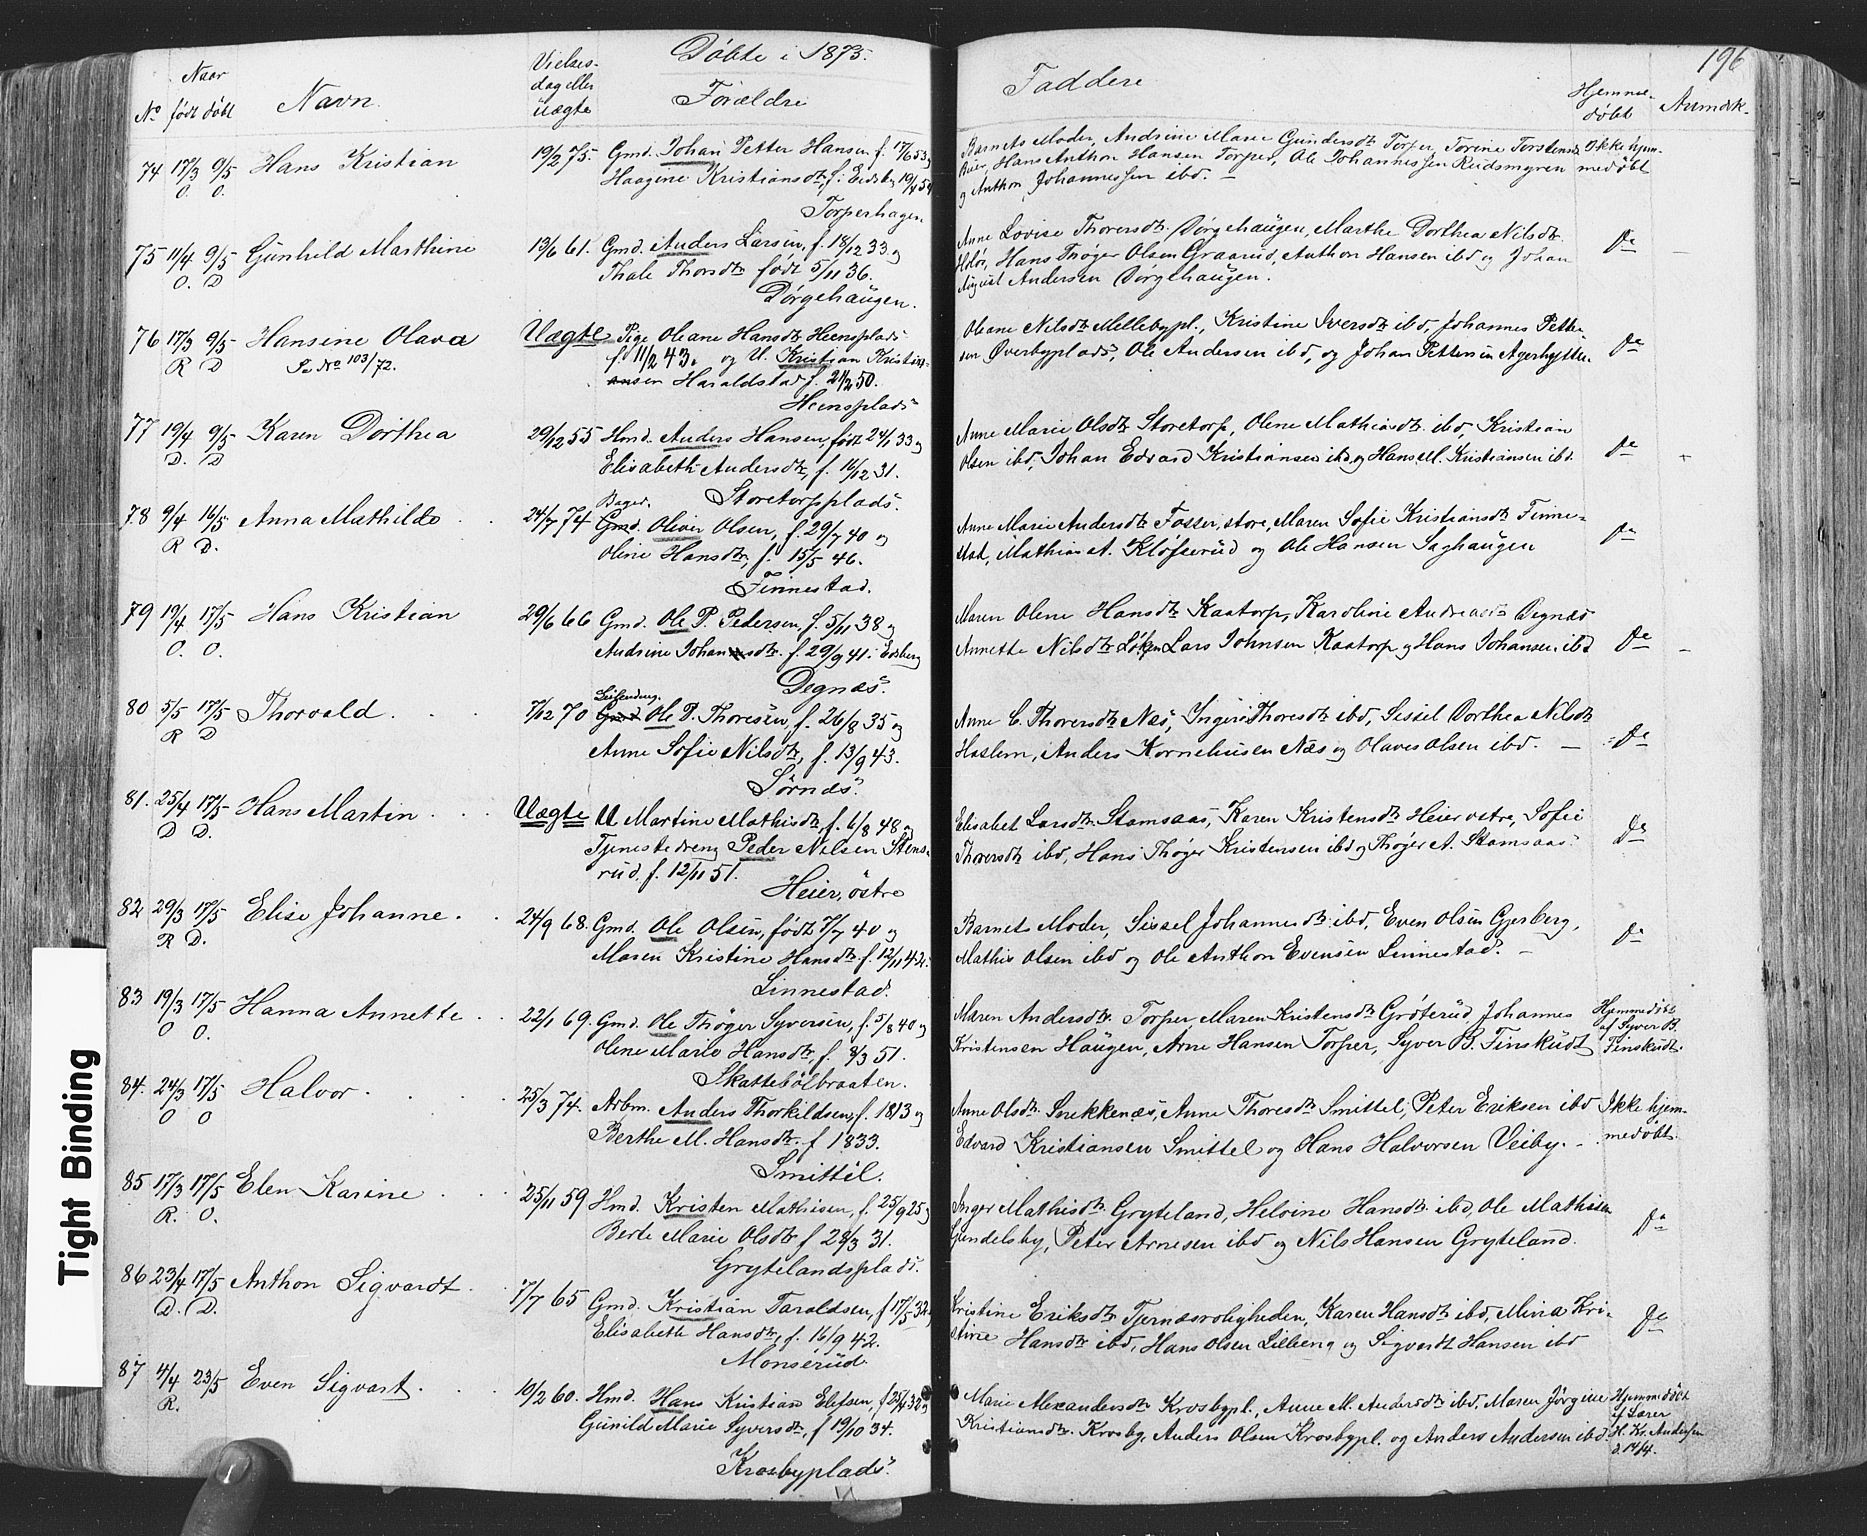 196
Døbte i 1875.
Naar
No født døbt
Navn
Vielses-
dag eller
uægte
Forældre
Faddere
Hjemme-
døbt
Anmærk.
74 17/3 9/5 Hans Kristian
O. O.
19/2 75. Gmd. Johan Petter Hansen f. 17/6 53 og
Haagine Kristiansdtr, f. i Eidsbg 19/4 54
Torperhagen
Barnets Moder, Andrine Marie Gundersdtr Torper, Torine Torstensdtr
Buer, Hans Anthon Hansen Torper, Ole Johannessen Reidsmyren
og Anthon Johannessen ibd. –
Ikke hjem-
medøbt
75 11/4 9/5 Gunhild Marthine
O. D
13/6 61. Gmd. Anders Larsen, f. 18/12 33 og
Thale Thorsdtr født 5/11 36.
Dørgehaugen.
Anne Lovise Thoresdtr. Dørgehaugen, Marthe Dorthea Nilsdtr
Hans Thøger Olsen Graarud, Anthon Hansen ibd og Johan
August Andersen Dørgehaugen.
Do
76 17/3 9/5 Hansine Olava
R D Se No 103/72.
Uægte Pige Oleane Hansdtr Heensplads
f. 11/2 43. og U. Kristian Kristi-
ansen Haraldstad f. 21/2 50.
Heensplads
Oleane Nilsdtr Mellebypl., Kristine Iversdtr ibd, Johannes Petter-
sen Øverbyplads, Ole Andersen ibd, og Johan Pettersen Agerhytten.
Do
77 19/4 9/5 Karen Dorthea
D. D
29/12 55 Hmd. Anders Hansen, født 24/1 33 og
Elisabeth Andersdtr, f. 11/12 31.
Storetorpplads.
Anne Marie Olsdtr Storetorp, Olene Mathisdtr ibd, Kristian
Olsen ibd, Johan Edvard Kristiansen ibd og Hans M. Kristiansen ibd.
Do
78 9/4 16/5 Anna Mathilde
R D.
24/7 74 Bager. Gmd. Oliver Olsen, f. 29/7 40 og
Oline Hansdtr, f. 15/5 46.
Finnestad.
Anne Marie Andersdtr Fosser, store, Maren Sofie Kristiansdtr Finne-
stad, Mathias A. Kløfserud og Ole Hansen Saghaugen
Do
79 19/4 17/5 Hans Kristian
O. O.
29/6 66 Gmd. Ole P. Pedersen, f. 5/11 38 og
Andrine Johansdtr. f. 29/9 41. i Edsberg
Degnæs.
Maren Olene Hansdtr Kaatorp, Karoline Andreasdtr Degnæs
Annette Nilsdtr Løken Lars Johnsen Kaatorp og Hans Johansen ibd
Do
80 5/5 17/5 Thorvald.
R D
7/12 70 Gmd Ole P. Thoresen, f. 26/8 35 og
Anne Sofie Nilsdtr, f. 13/9 43.
Sørnæs.
Anne C. Thoresdtr Næs, Inger Thoresdtr ibd, Sissel Dorthea Nilsdtr
Haslem, Anders Korneliusen Næs og Olaves Olsen ibd. –
Do
81. 25/4 17/5 Hans Martin
D D.
Uægte U Martine Mathisdtr, f. 6/8 48 og
Tjenestedreng Peder Nilsen Stens-
rud, f. 12/11 51.
Heier, østre
Elisabet Larsdtr. Stamsaas, Karen Kristensdtr Heier østre, Sofie
Thoresdtr ibd, Hans Thøger Kristensen ibd og Thøger A. Stamsaas.
Do
82 29/3 17/5 Elise Johanne.
R D.
24/9 68. Gmd. Ole Olsen, født 7/7 40 og
Maren Kristine Hansdtr f. 12/11 42.
Linnestad.
Barnets Moder, Sissel Johannesdtr ibd, Even Olsen Gjerberg,
Mathis Olsen ibd og Ole Anthon Evensen Linnestad. –
Do
83 19/3 17/5 Hanna Annette.
O O.
22/1 69. Gmd. Ole Thøger Syversen, f. 5/8 40 og
Olene Marie Hansdtr, f. 8/3 51.
Skattebølbraaten.
Maren Andersdtr. Torper, Maren Kristensdtr Grøterud, Johannes
Kristensen Haugen, Arne Hansen Torper, Syver B. Finskudt
Hjemmedøbt
af Syver B.
Finskudt.
84. 24/3 17/5 Halvor.
O O
25/3 74. Arbm. Anders Thorkildsen, f. 1813 og
Berthe M. Hansdtr. f 1833.
Smittil.
Anne Olsdtr. Snekkenæs, Anne Thoresdtr Smittel, Peter Eriksen ibd
Edvard Kristiansen Smittel og Hans Halvorsen Veiby. –
Ikke hjem-
medøbt.
85 17/3 17/5 Elen Karine
R. O.
25/11 59 Hmd. Kristen Mathisen, f. 25/9 25 og
Berte Marie Olsdtr f 28/3 31.
Grytelandsplads.
Inger Mathisdtr Gryteland, Helvine Hansdtr ibd, Ole Mathisen
Gundelsby, Peter Arnesen ibd og Nils Hansen Gryteland.
Do
86 23/4 17/5 Anthon Sigvardt.
D. D.
7/7 65 Gmd. Kristian Taraldsen, f 17/5 32,
Elisabeth Hansdtr, f. 16/9 42.
Monserud.
Kristine Eriksdtr Tjernæsroligheden, Karen Hansdtr ibd, Mina Kri-
stine Hansdtr ibd, Hans Olsen Lilleeng og Sigvardt Hansen ibd
Do
87 4/4 23/5 Even Sigvart.
R.
10/2 60. Hmd. Hans Kristian Elefsen, f 25/4 38 og
Gunild Marie Syversdtr, f 19/10 34.
Krosbyplads.
Marie Alexandersdtr Krosbypl., Anne M. Andersdtr ibd, Maren Jørgine
Kristiansdtr. Krosby, Anders Olsen Krosbypl. og Anders Andersen ibd.
Hjemmedøbt
af Lærer
H. Kr. Andersen
d. 14/4.
Tight Binding